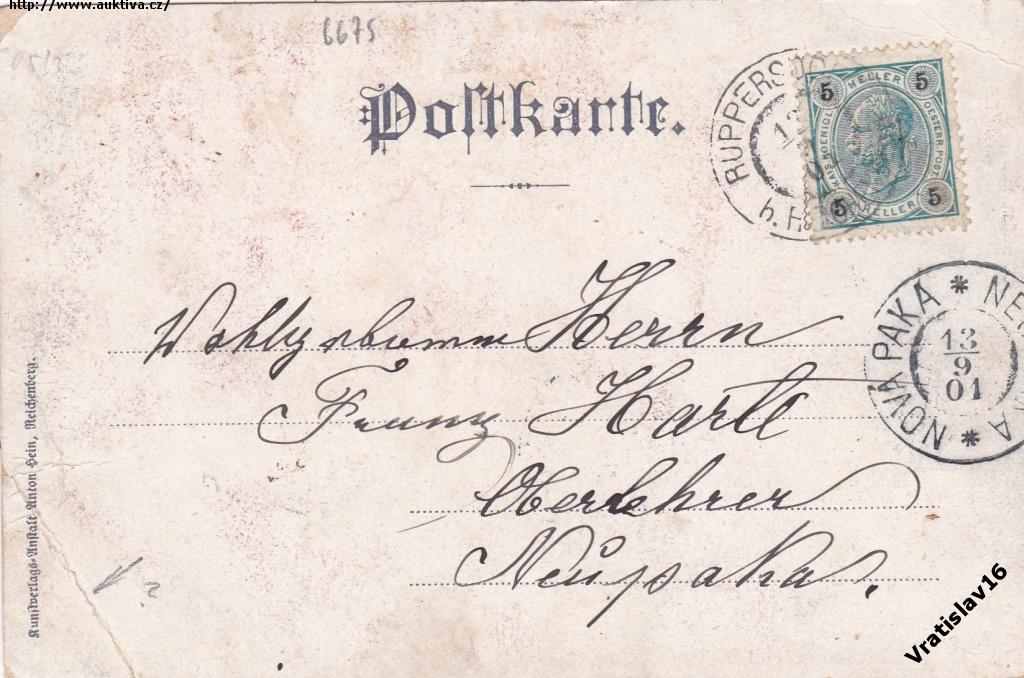 http://www.auktiva.cz/
6675
Postkarte.
RUPPERSDO
12
b. H
5 HELLER 5
KAIS. KOENIGL. OESTERR. POST
5 HELLER 5
NOVÁ PAKA * NE
13
9
01
KA *
Wohlgeboren Herrn
Franz Hartl
Oberlehrer
Neupaka.
Kunstverlags-Anstalt Anton Hein, Reichenberg.
Vratislav16